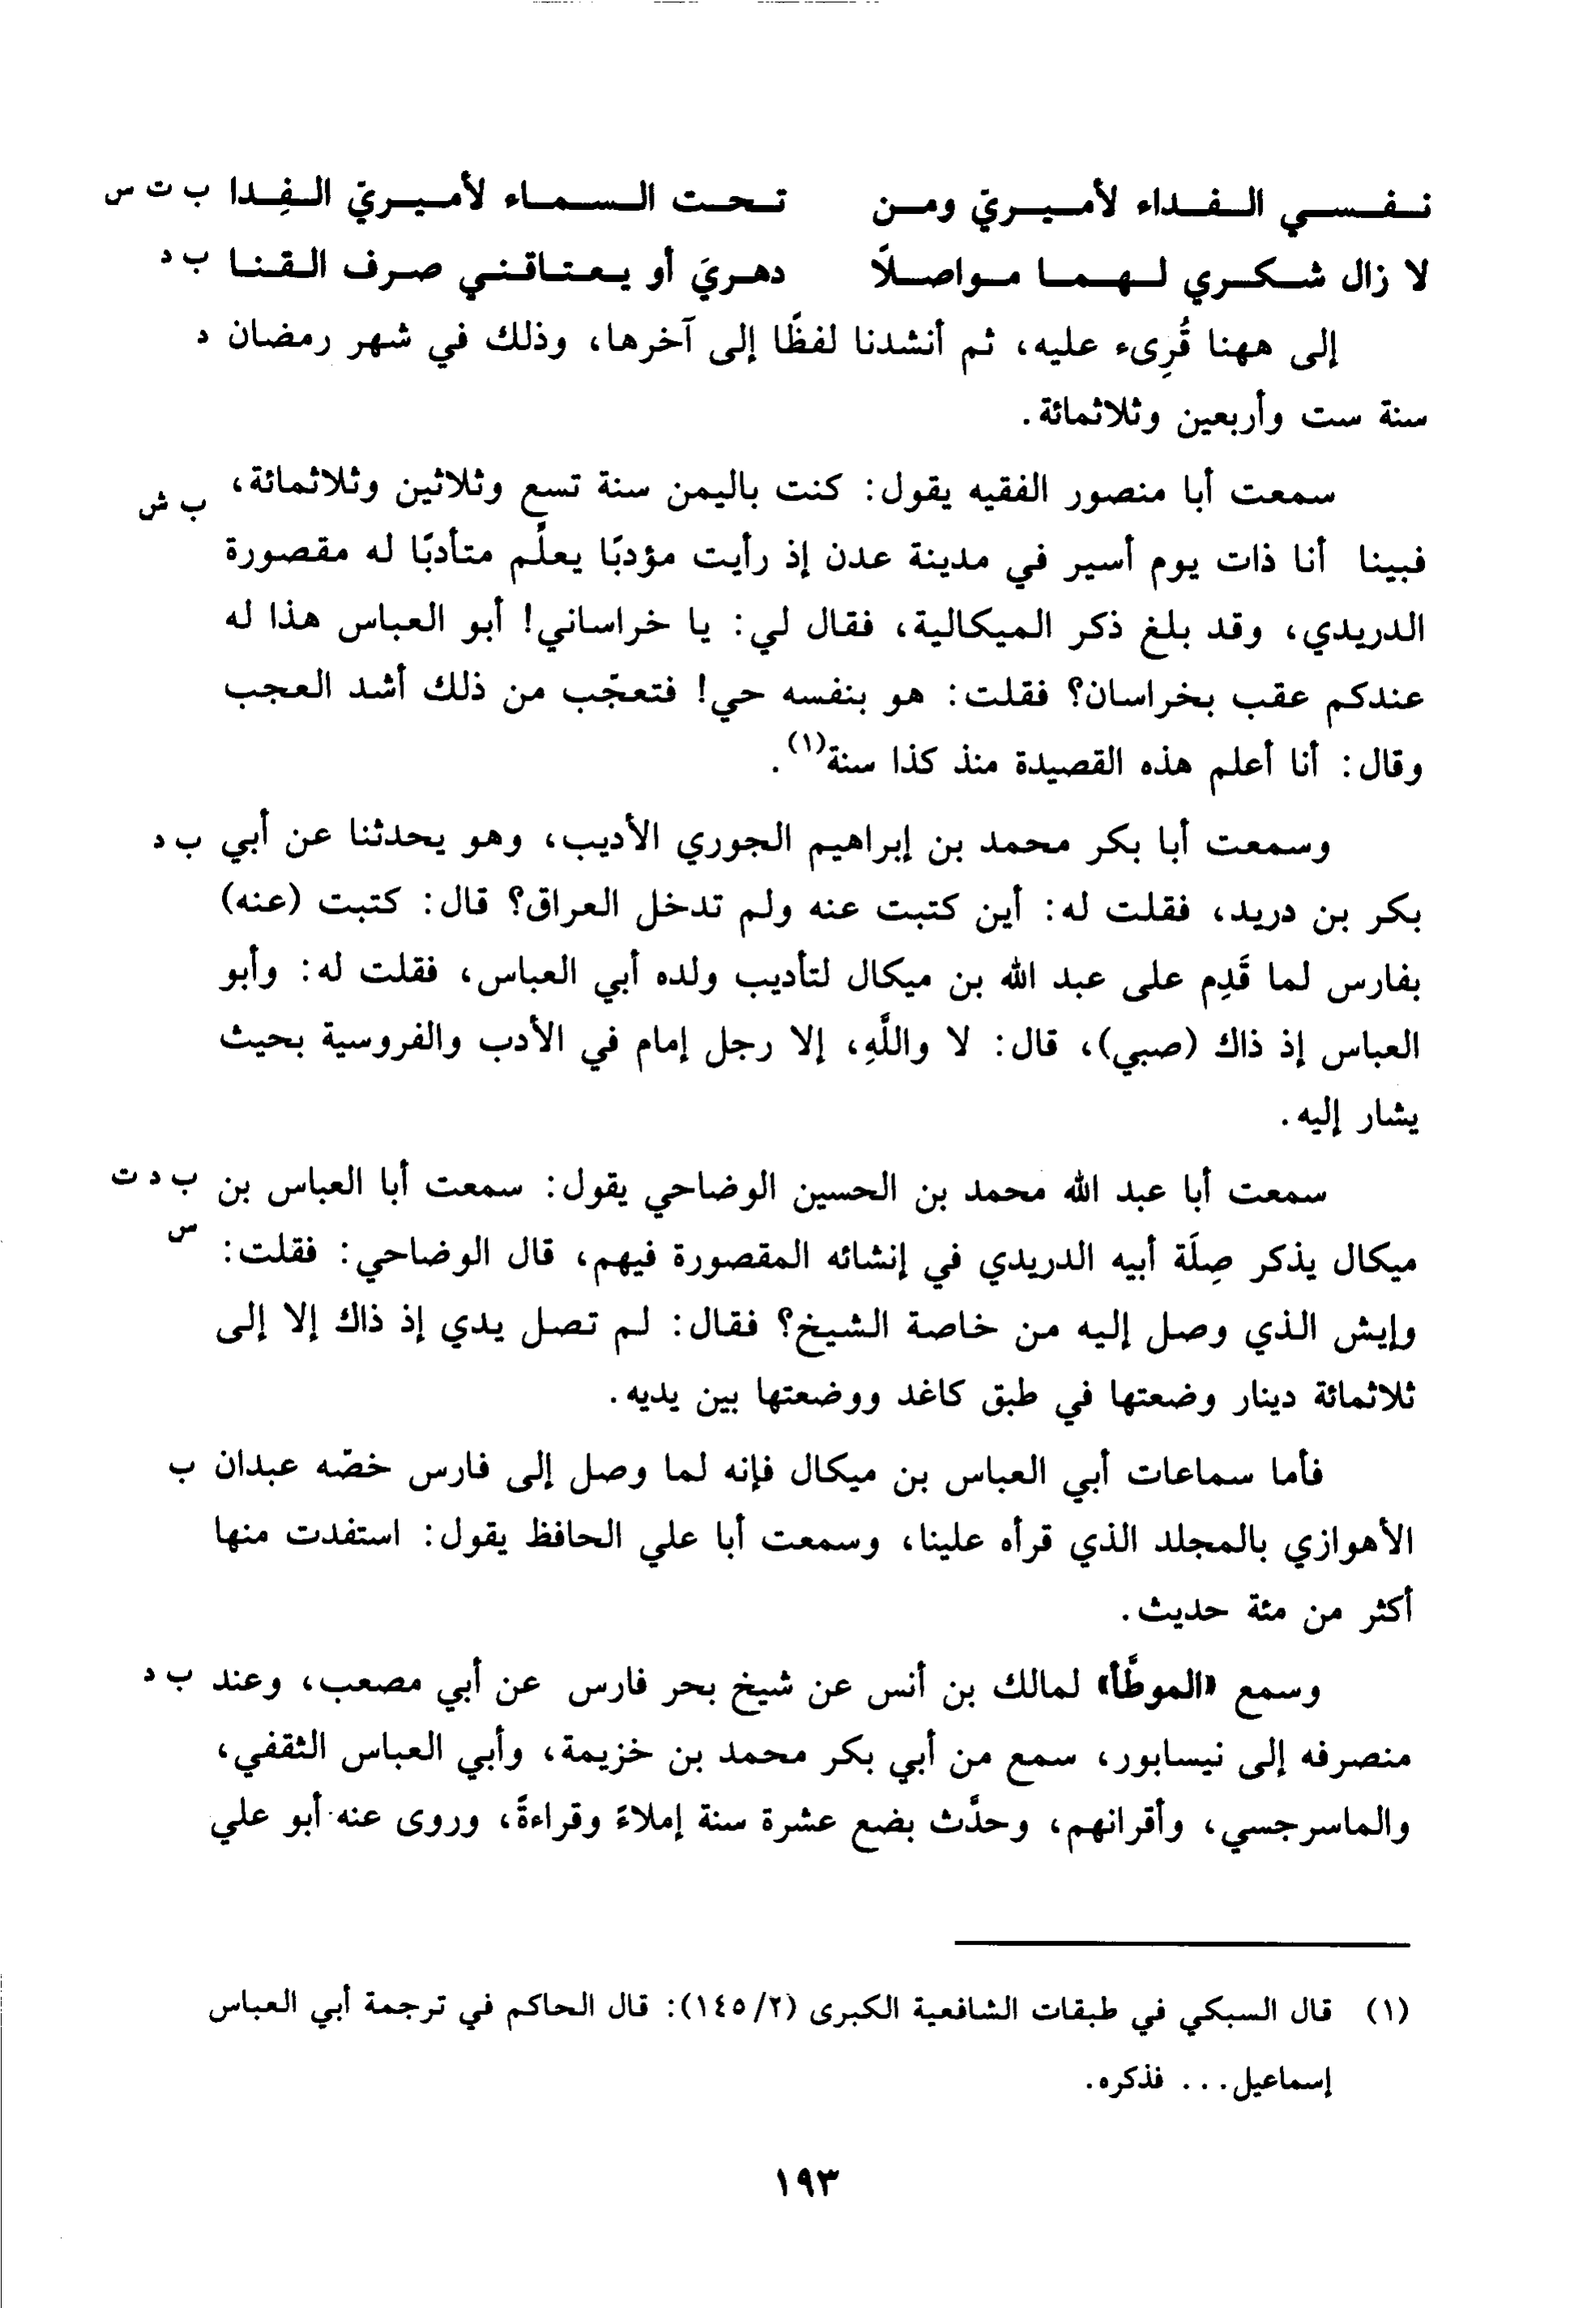 نفسي الفداء لأميريّ ومن تحت السماء لأميريّ الفِدا ب ت س
لا زال شكري لهما مواصلًا دهريَ أو يعتاقني صرف القنا ب د
إلى ههنا قُرِىء عليه، ثم أنشدنا لفظًا إلى آخرها، وذلك في شهر رمضان د
سنة ست وأربعين وثلاثمائة.
سمعت أبا منصور الفقيه يقول: كنت باليمن سنة تسع وثلاثين وثلاثمائة، ب ش
فبينا أنا ذات يوم أسير في مدينة عدن إذ رأيت مؤدبًا يعلِّم متأدبًا له مقصورة
الدريدي، وقد بلغ ذكر الميكالية، فقال لي: يا خراساني! أبو العباس هذا له
عندكم عقب بخراسان؟ فقلت: هو بنفسه حي! فتعجّب من ذلك أشد العجب
وقال: أنا أعلم هذه القصيدة منذ كذا سنة(١).
وسمعت أبا بكر محمد بن إبراهيم الجوري الأديب، وهو يحدثنا عن أبي ب د
بكر بن دريد، فقلت له: أين كتبت عنه ولم تدخل العراق؟ قال: كتبت (عنه)
بفارس لما قَدِم على عبد الله بن ميكال لتأديب ولده أبي العباس، فقلت له: وأبو
العباس إذ ذاك (صبي)، قال: لا واللَّهِ، إلا رجل إمام في الأدب والفروسية بحيث
يشار إليه.
سمعت أبا عبد الله محمد بن الحسين الوضاحي يقول: سمعت أبا العباس بن ب د ت
ميكال يذكر صِلَة أبيه الدريدي في إنشائه المقصورة فيهم، قال الوضاحي: فقلت: س
وإيش الذي وصل إليه من خاصة الشيخ؟ فقال: لم تصل يدي إذ ذاك إلا إلى
ثلاثمائة دينار وضعتها في طبق كاغد ووضعتها بين يديه.
فأما سماعات أبي العباس بن ميكال فإنه لما وصل إلى فارس خصّه عبدان ب
الأهوازي بالمجلد الذي قرأه علينا، وسمعت أبا علي الحافظ يقول: استفدت منها
أكثر من مئة حديث.
وسمع «الموطَّأ» لمالك بن أنس عن شيخ بحر فارس عن أبي مصعب، وعند ب د
منصرفه إلى نيسابور، سمع من أبي بكر محمد بن خزيمة، وأبي العباس الثقفي،
والماسرجسي، وأقرانهم، وحدَّث بضع عشرة سنة إملاءً وقراءةً، وروى عنه أبو علي
(١) قال السبكي في طبقات الشافعية الكبرى (١٤٥/٢): قال الحاكم في ترجمة أبي العباس
إسماعيل... فذكره.
١٩٣